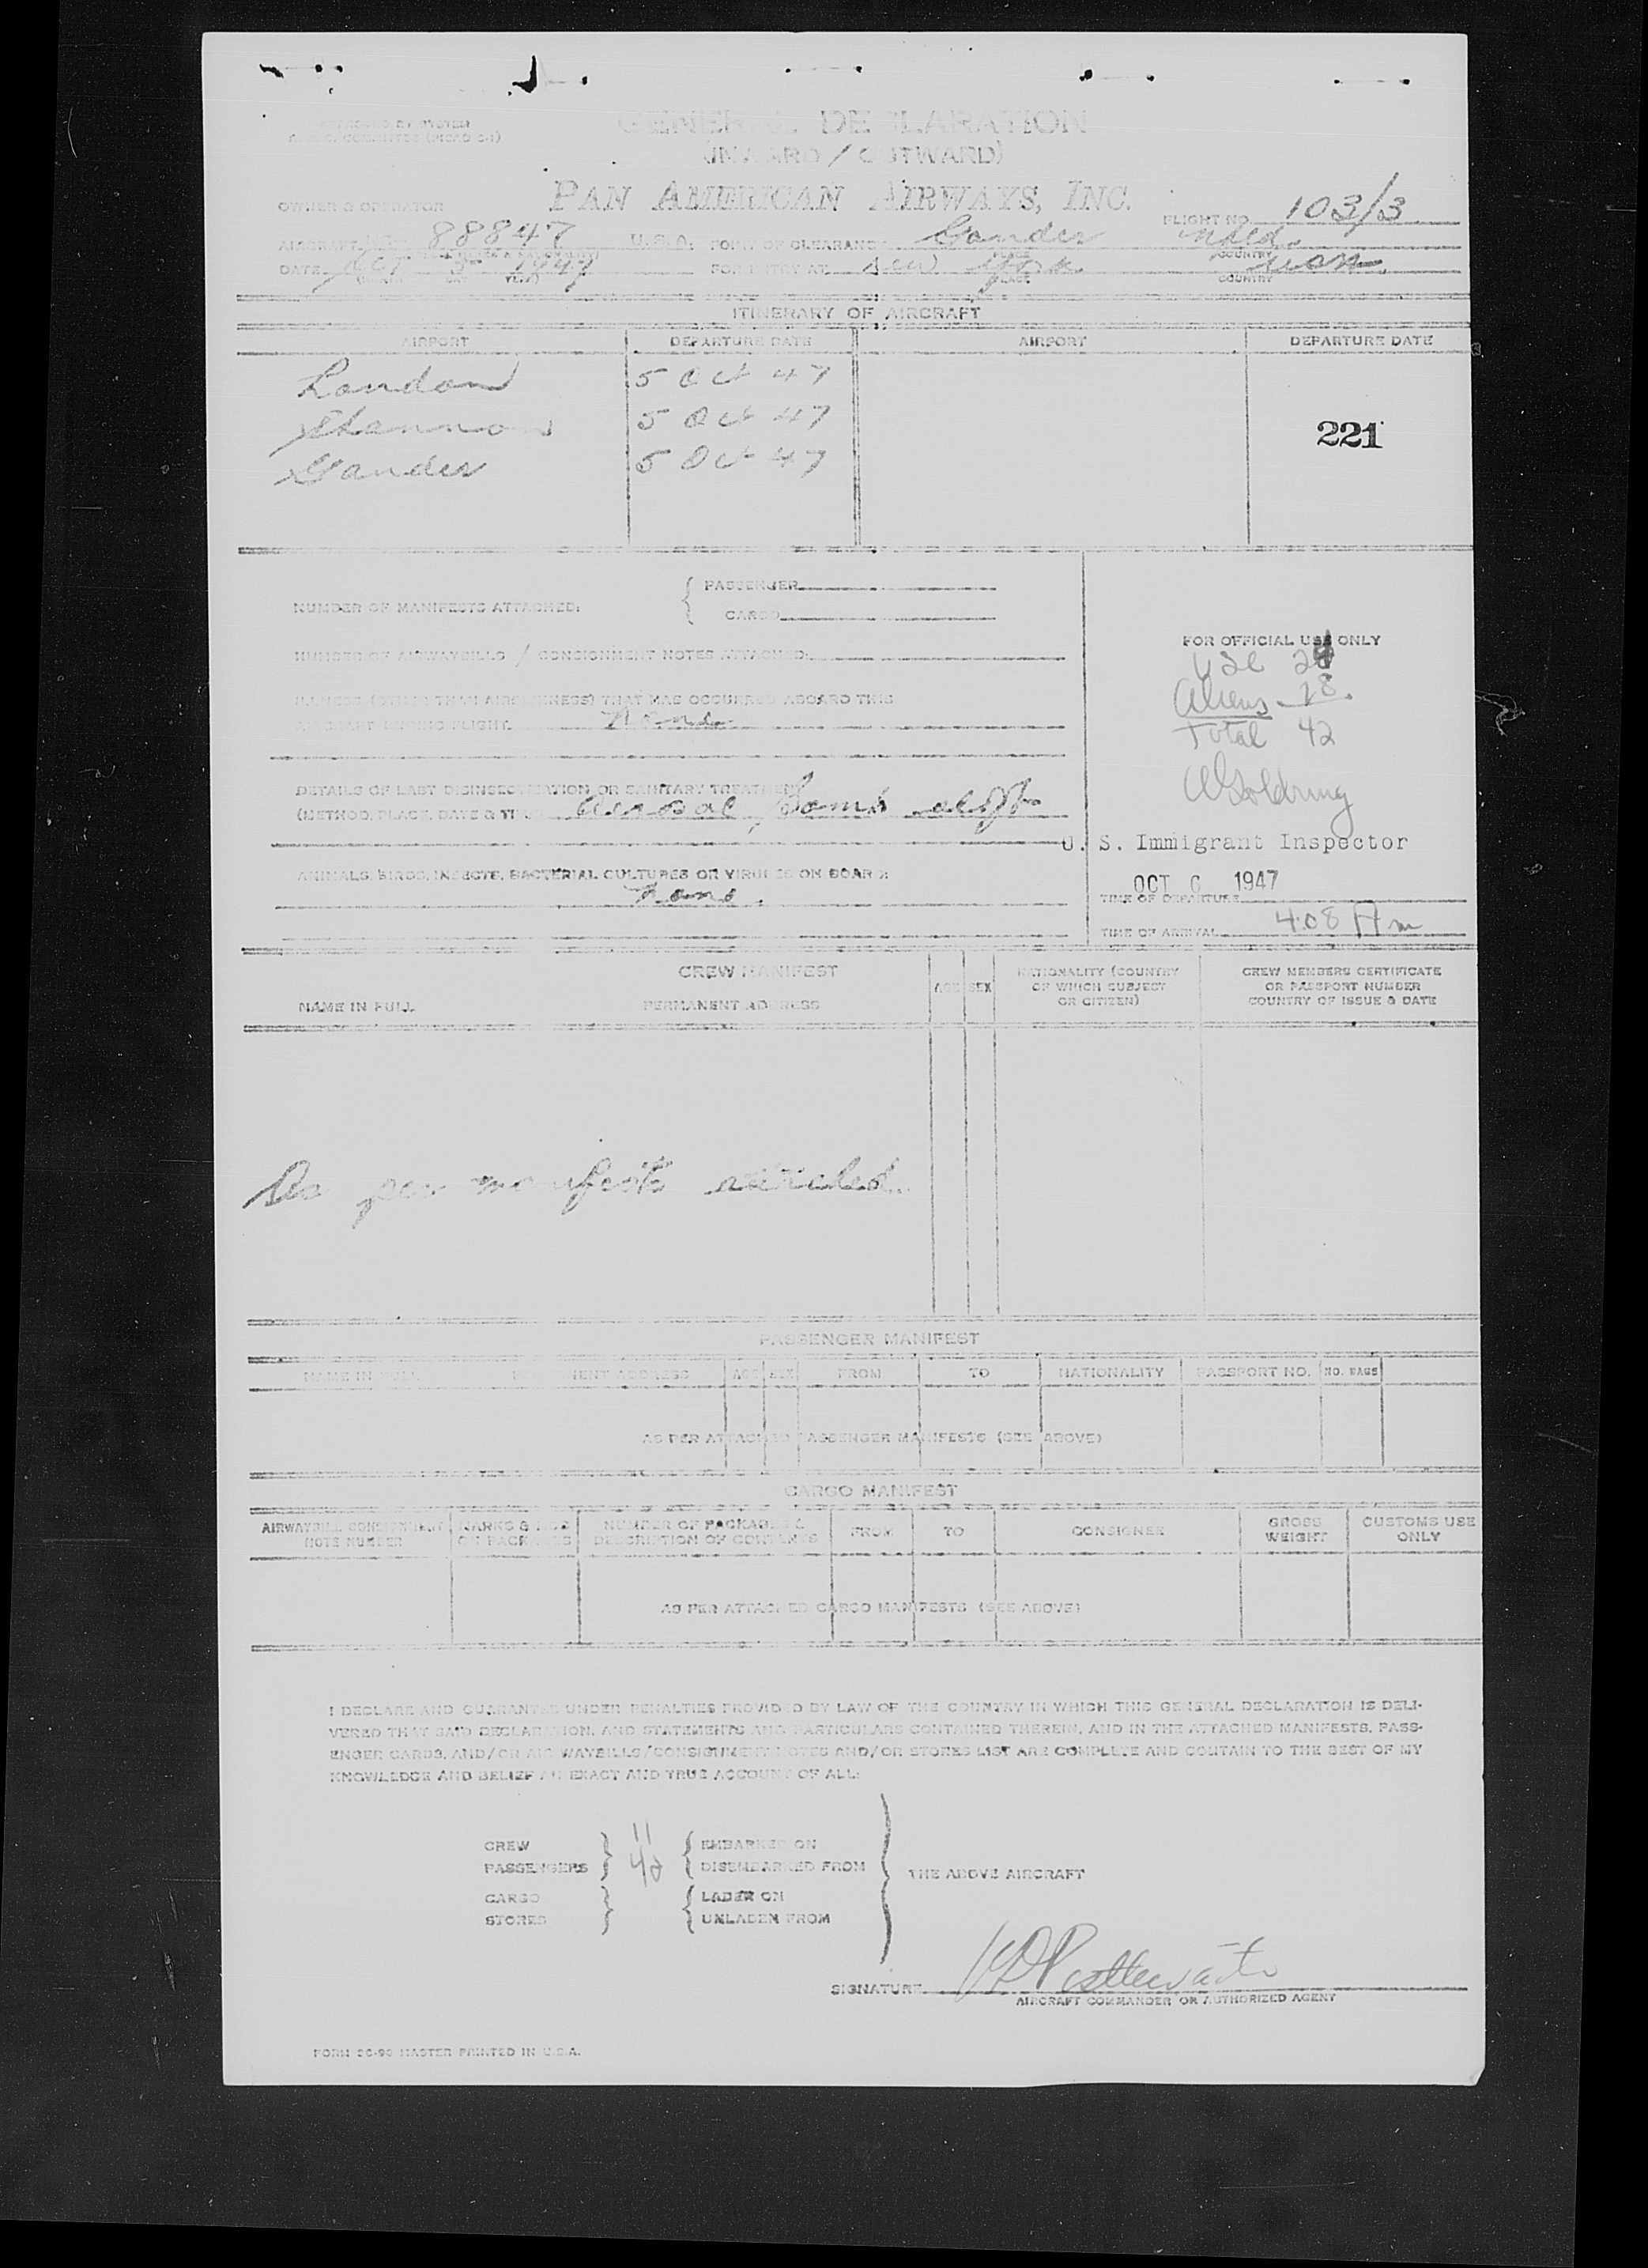 GENERAL DECLARATION
(INWARD / OUTWARD)
PAN AMERICAN AIRWAYS, INC.
OWNER & OPERATOR
FLIGHT NO. 103/3
AIRCRAFT 88847 U.S.A. PORT OF CLEARANCE Gander Nfld.
PLACE COUNTRY
DATE OCT 5 1947 FOR ENTRY AT New York USA.
DAY YEAR PLACE COUNTRY
ITINERARY OF AIRCRAFT
AIRPORT DEPARTURE DATE AIRPORT DEPARTURE DATE
London 5 Oct 47
Shannon 5 Oct 47
221
Gander 5 Oct 47
NUMBER OF MANIFESTS ATTACHED: PASSENGER
CARGO
NUMBER OF AIRWAYBILLS / CONSIGNMENT NOTES ATTACHED:
ILLNESS (OTHER THAN AIRSICKNESS) THAT HAS OCCURRED ABOARD THIS
AIRCRAFT DURING FLIGHT. None
DETAILS OF LAST DISINSECTIZATION OR SANITARY TREATMENT
(METHOD, PLACE, DATE & TIME) Aerosol,
ANIMALS, BIRDS, INSECTS, BACTERIAL CULTURES OR VIRUSES ON BOARD:
None.
FOR OFFICIAL USE ONLY
USC 24
Aliens 18.
Total 42
U. S. Immigrant Inspector
OCT 6 1947
TIME OF DEPARTURE
TIME OF ARRIVAL 4:08 Am
CREW MANIFEST
NAME IN FULL PERMANENT ADDRESS AGE SEX NATIONALITY (COUNTRY OF WHICH SUBJECT OR CITIZEN) CREW MEMBERS CERTIFICATE OR PASSPORT NUMBER COUNTRY OF ISSUE & DATE
As per manifests attached.
PASSENGER MANIFEST
NAME IN FULL PERMANENT ADDRESS AGE SEX FROM TO NATIONALITY PASSPORT NO. NO. BAGS
AS PER ATTACHED PASSENGER MANIFESTS (SEE ABOVE)
CARGO MANIFEST
AIRWAYBILL CONSIGNMENT NOTE NUMBER MARKS & NOS ON PACKAGES NUMBER OF PACKAGES & DESCRIPTION OF CONTENTS FROM TO CONSIGNEE GROSS WEIGHT CUSTOMS USE ONLY
AS PER ATTACHED CARGO MANIFESTS (SEE ABOVE)
I DECLARE AND GUARANTEE UNDER PENALTIES PROVIDED BY LAW OF THE COUNTRY IN WHICH THIS GENERAL DECLARATION IS DELI-
VERED THAT SAID DECLARATION, AND STATEMENTS AND PARTICULARS CONTAINED THEREIN, AND IN THE ATTACHED MANIFESTS, PASS-
ENGER CARDS, AND/OR AIR WAYBILLS/CONSIGNMENT NOTES AND/OR STORES LIST ARE COMPLETE AND CONTAIN TO THE BEST OF MY
KNOWLEDGE AND BELIEF AN EXACT AND TRUE ACCOUNT OF ALL:
CREW 11 EMBARKED ON
PASSENGERS 42 DISEMBARKED FROM THE ABOVE AIRCRAFT
CARGO LADEN ON
STORES UNLADEN FROM
SIGNATURE
AIRCRAFT COMMANDER OR AUTHORIZED AGENT
FORM CC-90 MASTER PRINTED IN U.S.A.